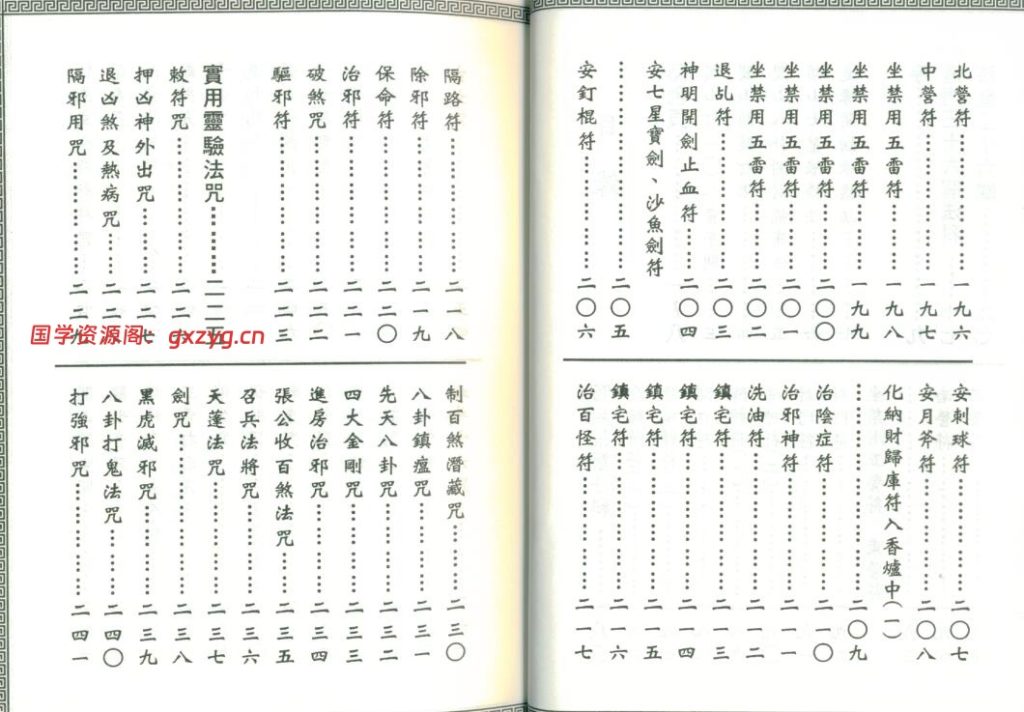 北營符……一九六
中營符……一九七
坐禁用五雷符……一九八
坐禁用五雷符……一九九
坐禁用五雷符……二〇〇
坐禁用五雷符……二〇一
坐禁用五雷符……二〇二
退乩符……二〇三
神明開劍止血符……二〇四
安七星寶劍、沙魚劍符
……二〇五
安釘棍符……二〇六
安刺球符……二〇七
安月斧符……二〇八
化納財歸庫符入香爐中(一)
……二〇九
治陰症符……二一〇
治邪神符……二一一
洗油符……二一二
鎮宅符……二一三
鎮宅符……二一四
鎮宅符……二一五
鎮宅符……二一六
治百怪符……二一七
隔路符……二一八
除邪符……二一九
保命符……二二〇
治邪符……二二一
破煞咒……二二二
驅邪符……二二三
實用靈驗法咒……二二五
敕符咒……二二六
押凶神外出咒……二二七
退凶煞及熱病咒……二二八
隔邪用咒……二二九
制百煞潛藏咒……二三〇
八卦鎮瘟咒……二三一
先天八卦咒……二三二
四大金剛咒……二三三
進房治邪咒……二三四
張公收百煞法咒……二三五
召兵法將咒……二三六
天蓬法咒……二三七
劍咒……二三八
黑虎滅邪咒……二三九
八卦打鬼法咒……二四〇
打強邪咒……二四一
国学资源阁 gxzyg.cn